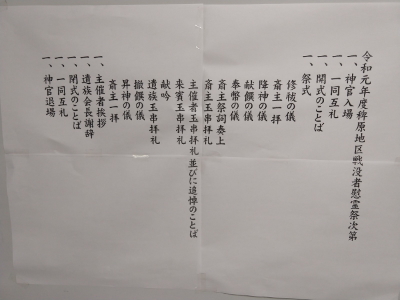 令和元年度稗原地区戦没者慰霊祭次第
一、神官入場
一、一同互礼
一、開式のことば
一、祭式
修祓の儀
斎主一拝
降神の儀
献饌の儀
奉幣の儀
斎主祭詞奏上
斎主玉串拝礼
主催者玉串拝礼並びに追悼のことば
来賓玉串拝礼
献吟
遺族玉串拝礼
撤饌の儀
昇神の儀
斎主一拝
一、主催者挨拶
一、遺族会長謝辞
一、閉式のことば
一、一同互礼
一、神官退場